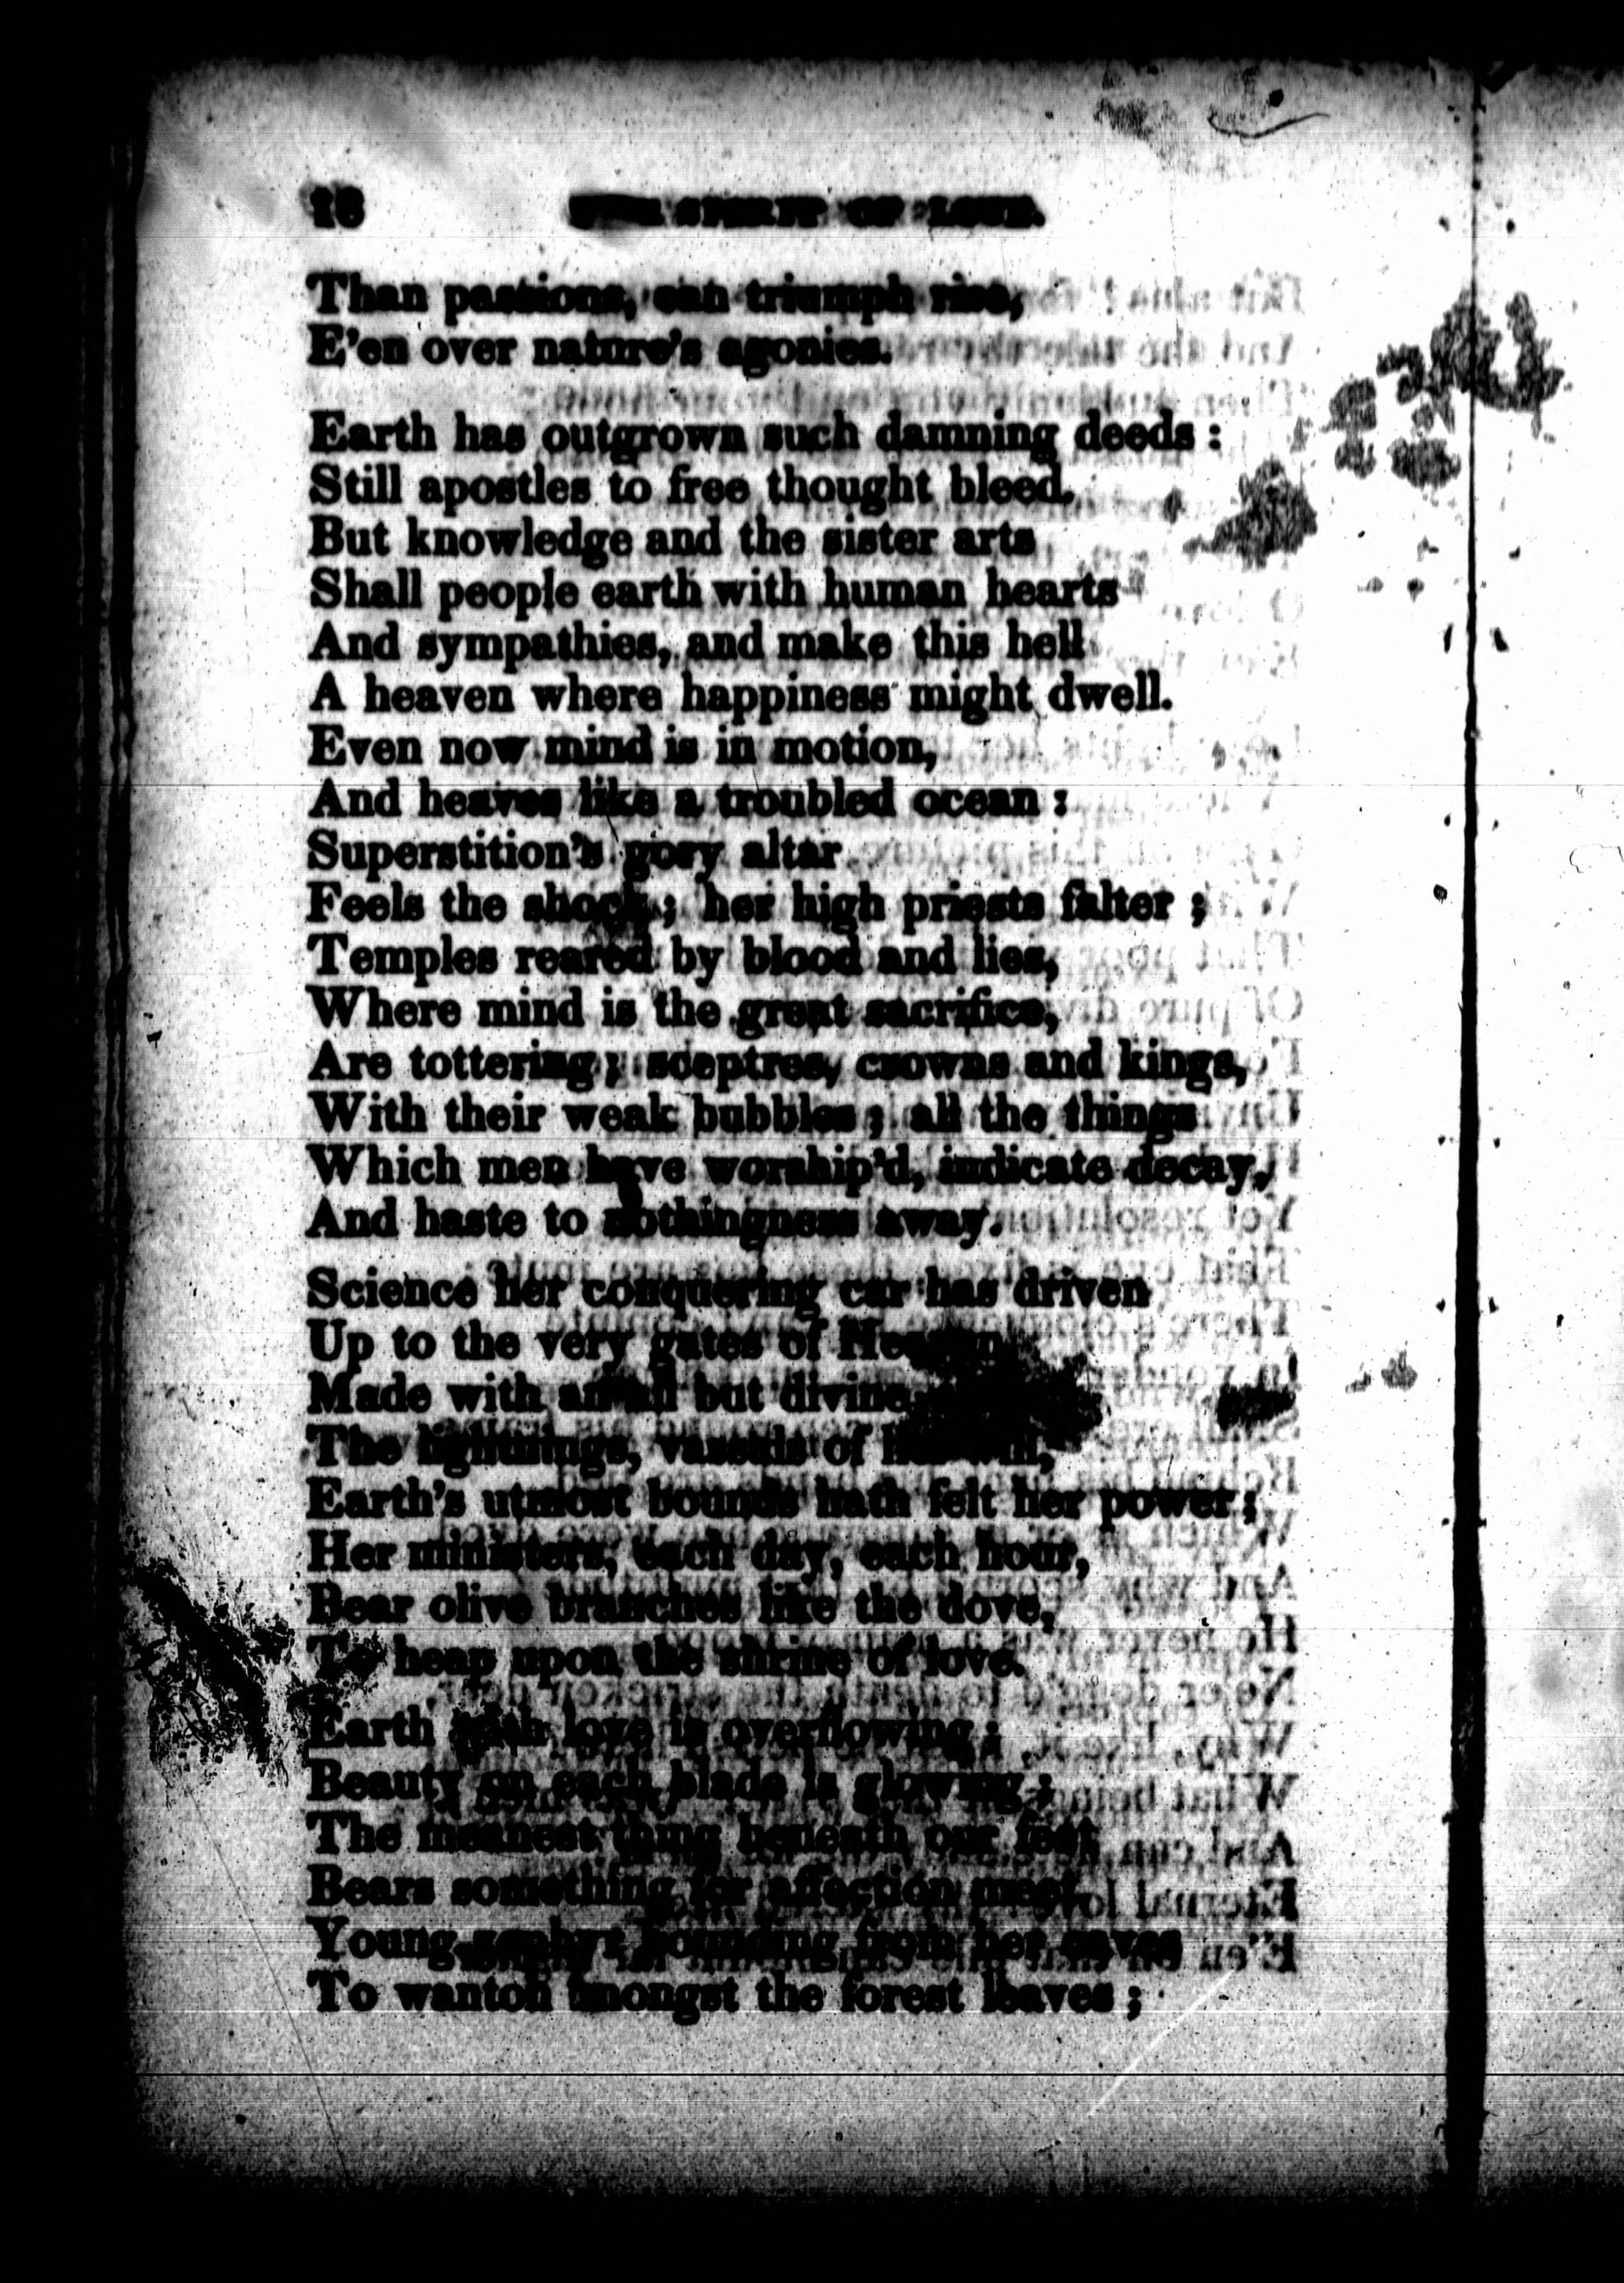 16 THE SPIRIT OF LOVE.
Than passions, can triumph rise,
E'en over nature's agonies.
Earth has outgrown such damning deeds :
Still apostles to free thought bleed.
But knowledge and the sister arts
Shall people earth with human hearts
And sympathies, and make this hell
A heaven where happiness might dwell.
Even now mind is in motion,
And heaves like a troubled ocean :
Superstition's gory altar
Feels the shock ; her high priests falter ;
Temples reared by blood and lies,
Where mind is the great sacrifice,
Are tottering ; sceptres, crowns and kings,
With their weak bubbles ; all the things
Which men have worship'd, indicate decay,
And haste to nothingness away.
Science her conquering car has driven
Up to the very gates of Heaven
Made with an all but divine
The lightnings, vassals of her will,
Earth's utmost bounds hath felt her power ;
Her ministers, each day, each hour,
Bear olive branches like the dove,
To heap upon the shrine of love.
Earth with love is overflowing ;
Beauty on each blade is glowing ;
The meanest thing beneath our feet
Bears something for affection meet.
Young zephyr bounding from her caves
To wanton amongst the forest leaves ;